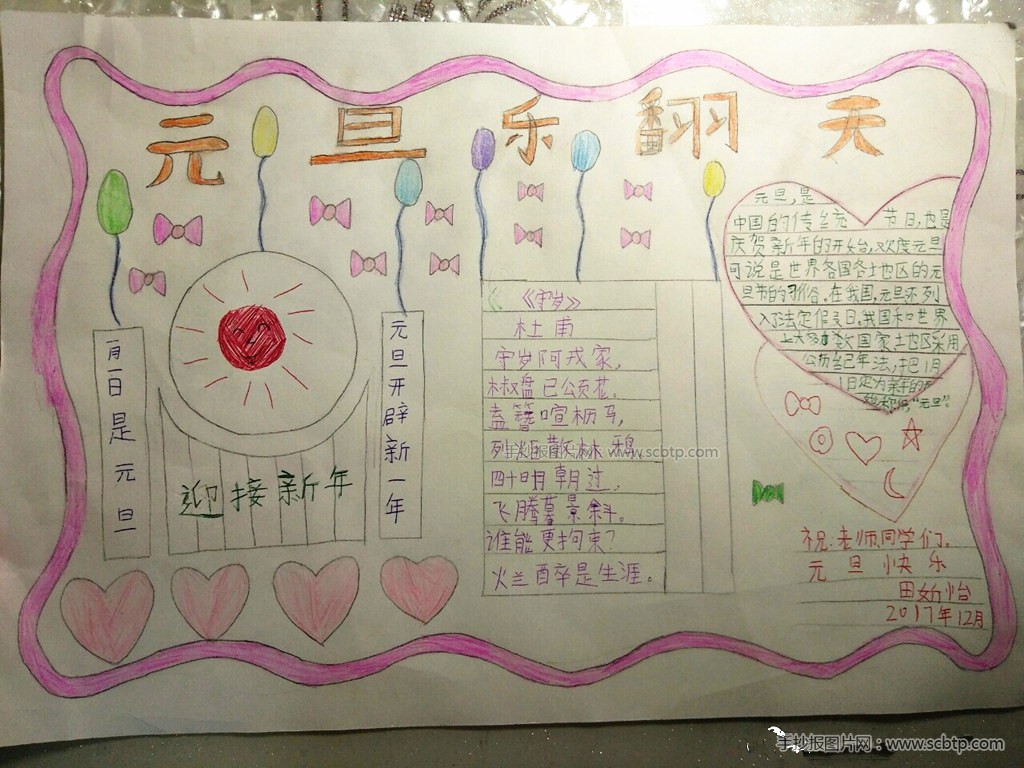 元旦乐翻天
一月一日是元旦
迎接新年
元旦开辟新一年
《守岁》
杜甫
守岁阿戎家，
椒盘已颂花。
盍簪喧枥马，
列炬散林鸦。
四十明朝过，
飞腾暮景斜。
谁能更拘束？
火兰酉卒是生涯。
元旦,是
中国的传统 节日,也是
庆贺新年的开始,欢度元旦
可说是世界各国各土也区的元
旦节的习俗。在我国,元旦不列
入了法定假日,我国和世界
上大多数国家土也区采用
公历纪年法,把1月
1日定为新年的开
始,称 "元旦"。
祝:老师,同学们。
元旦快乐
田妡怡
2017年12月
手抄报图片网 www.scbtp.com
手抄报图片网：www.scbtp.com